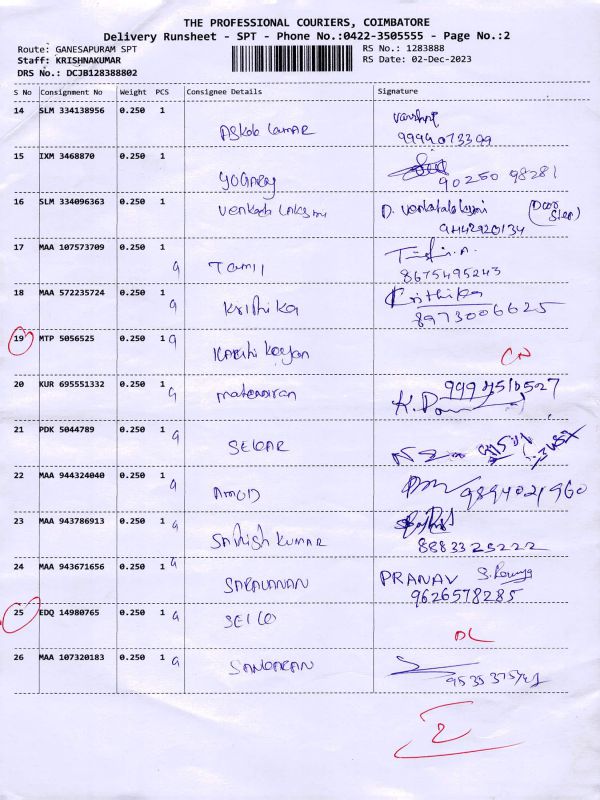 THE PROFESSIONAL COURIERS, COIMBATORE
Delivery Runsheet - SPT - Phone No.:0422-3505555 - Page No.:2
Route: GANESAPURAM SPT RS No.: 1283888
Staff: KRISHNAKUMAR RS Date: 02-Dec-2023
DRS No.: DCJB128388802
S No Consignment No Weight PCS Consignee Details Signature
14 SLM 334138956 0.250 1 Ashok kumar
9994073399
15 IXM 3468870 0.250 1 YOGARAJ
90250 98281
16 SLM 334096363 0.250 1 Venkada Lakshmi D. Venkatalakshmi (Door
9442920134
17 MAA 107573709 0.250 1 9 Tamil
8675495243
18 MAA 572235724 0.250 1 9 Krithika Krithika
8973006625
19 MTP 5056525 0.250 1 9 CN
20 KUR 695551332 0.250 1 9
21 PDK 5044789 0.250 1 9 SEKAR
22 MAA 944324040 0.250 1 9
9894021960
23 MAA 943786913 0.250 1 9 Sathish KUMAR
8883325222
24 MAA 943671656 0.250 1 9 SARAVANAN PRANAV
9626578285
25 EDQ 14980765 0.250 1 9 DL
26 MAA 107320183 0.250 1 9 SANKARAN
2